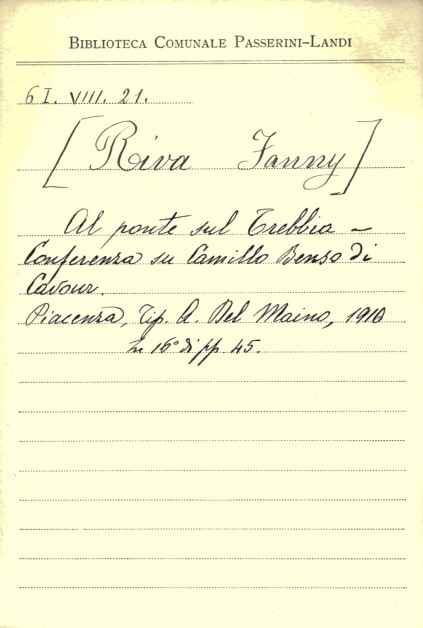 BIBLIOTECA COMUNALE PASSERINI-LANDI
6 I. VIII. 21.
[Riva Fanny]
Al ponte sul Trebbia -
Conferenza su Camillo Benso di
Cavour.
Piacenza, Tip. A. Del Maino, 1910
In 16° di pp. 45.